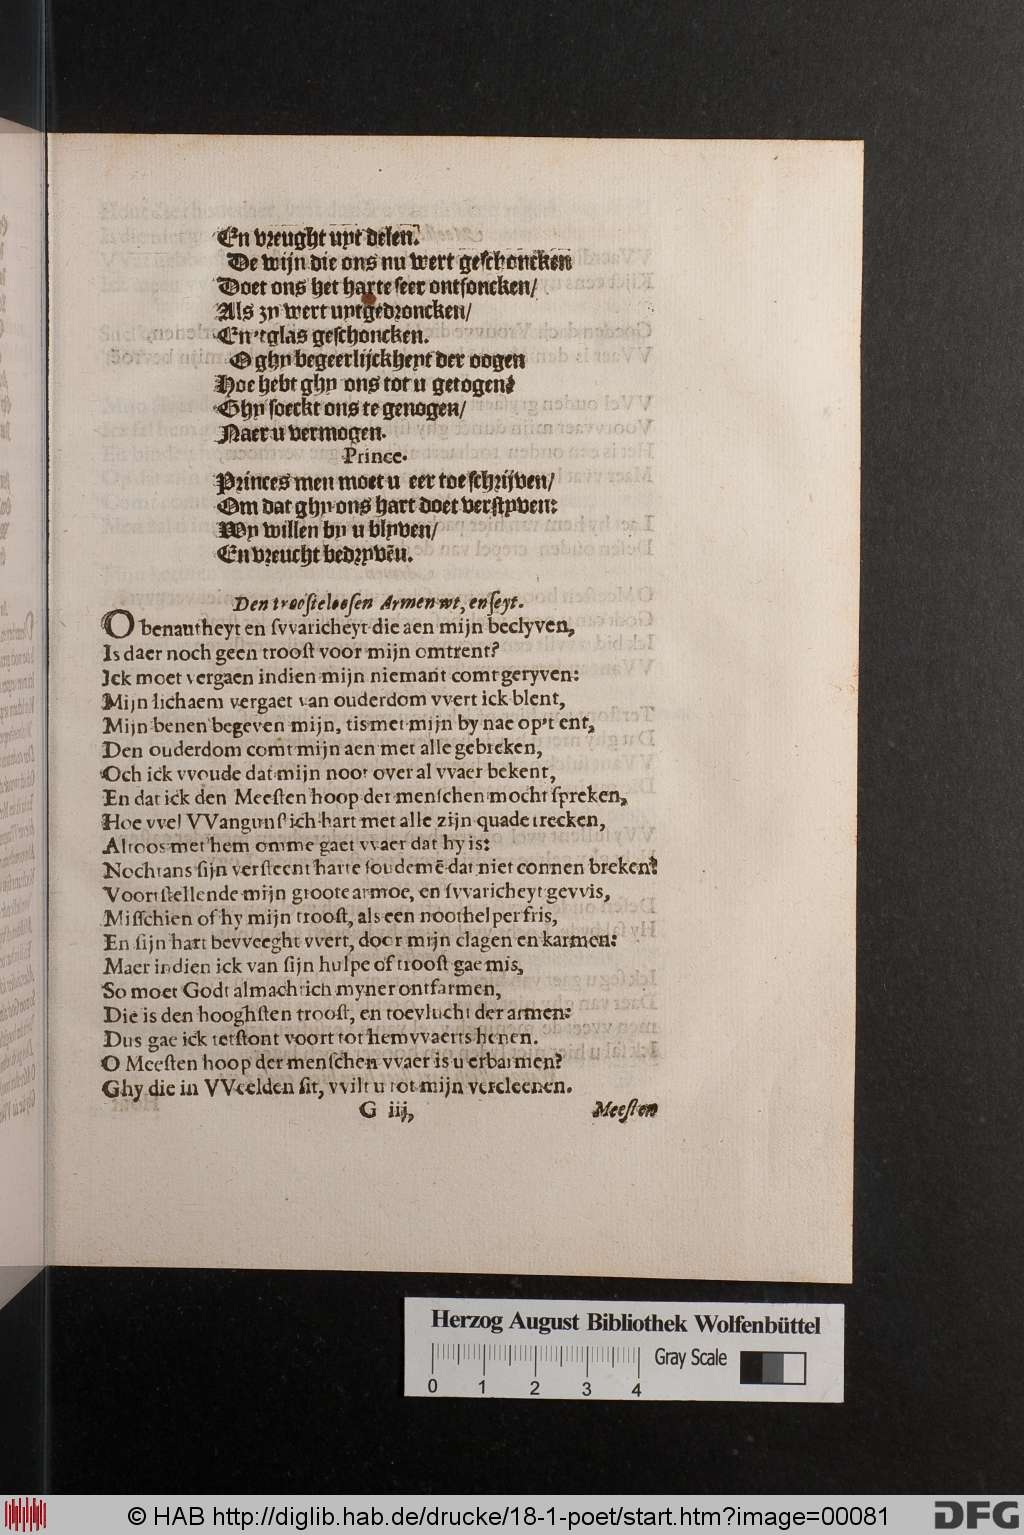 En vreught uyt delen.
De wijn die ons nu wert geschoncken
Doet ons het harte seer ontfoncken/
Als zy wert uytgedroncken/
En 'tglas geschoncken.
O ghy begeerlijckheyt der oogen
Hoe hebt ghy ons tot u getogen?
Ghy soeckt ons te genogen/
Naer u vermogen.
Prince.
Princes men moet u eer toe schrijven/
Om dat ghy ons hart doet verstyven:
Wy willen by u blyven/
En vreucht bedryvẽu.
Den troosteloosen Armen wt, en seyt.
O benautheyt en svvaricheyt die aen mijn beclyven,
Is daer noch geen troost voor mijn omtrent?
Ick moet vergaen indien mijn niemant comt geryven:
Mijn lichaem vergaet van ouderdom vvert ick blent,
Mijn benen begeven mijn, tis met mijn by nae op't ent,
Den ouderdom comt mijn aen met alle gebreken,
Och ick vvoude dat mijn noot over al vvaer bekent,
En dat ick den Meesten hoop der menschen mocht spreken,
Hoe vvel VVangunstich hart met alle zijn quade trecken,
Altoos met hem omme gaet vvaer dat hy is:
Nochtans sijn versteent harte soudemẽ dat niet connen breken?
Voort stellende mijn groote armoe, en svvaricheyt gevvis,
Misschien of hy mijn troost, als een noothelper fris,
En sijn hart bevveeght vvert, door mijn clagen en karmen:
Maer indien ick van sijn hulpe of troost gae mis,
So moet Godt almachtich myner ontfarmen,
Die is den hooghsten troost, en toevlucht der armen:
Dus gae ick terstont voort tot hem vvaerts henen.
O Meesten hoop der menschen vvaer is u erbarmen?
Ghy die in VVeelden sit, vvilt u tot mijn vercleenen.
G iij,
Meesten
Herzog August Bibliothek Wolfenbüttel
Gray Scale
0 1 2 3 4
© HAB http://diglib.hab.de/drucke/18-1-poet/start.htm?image=00081
DFG